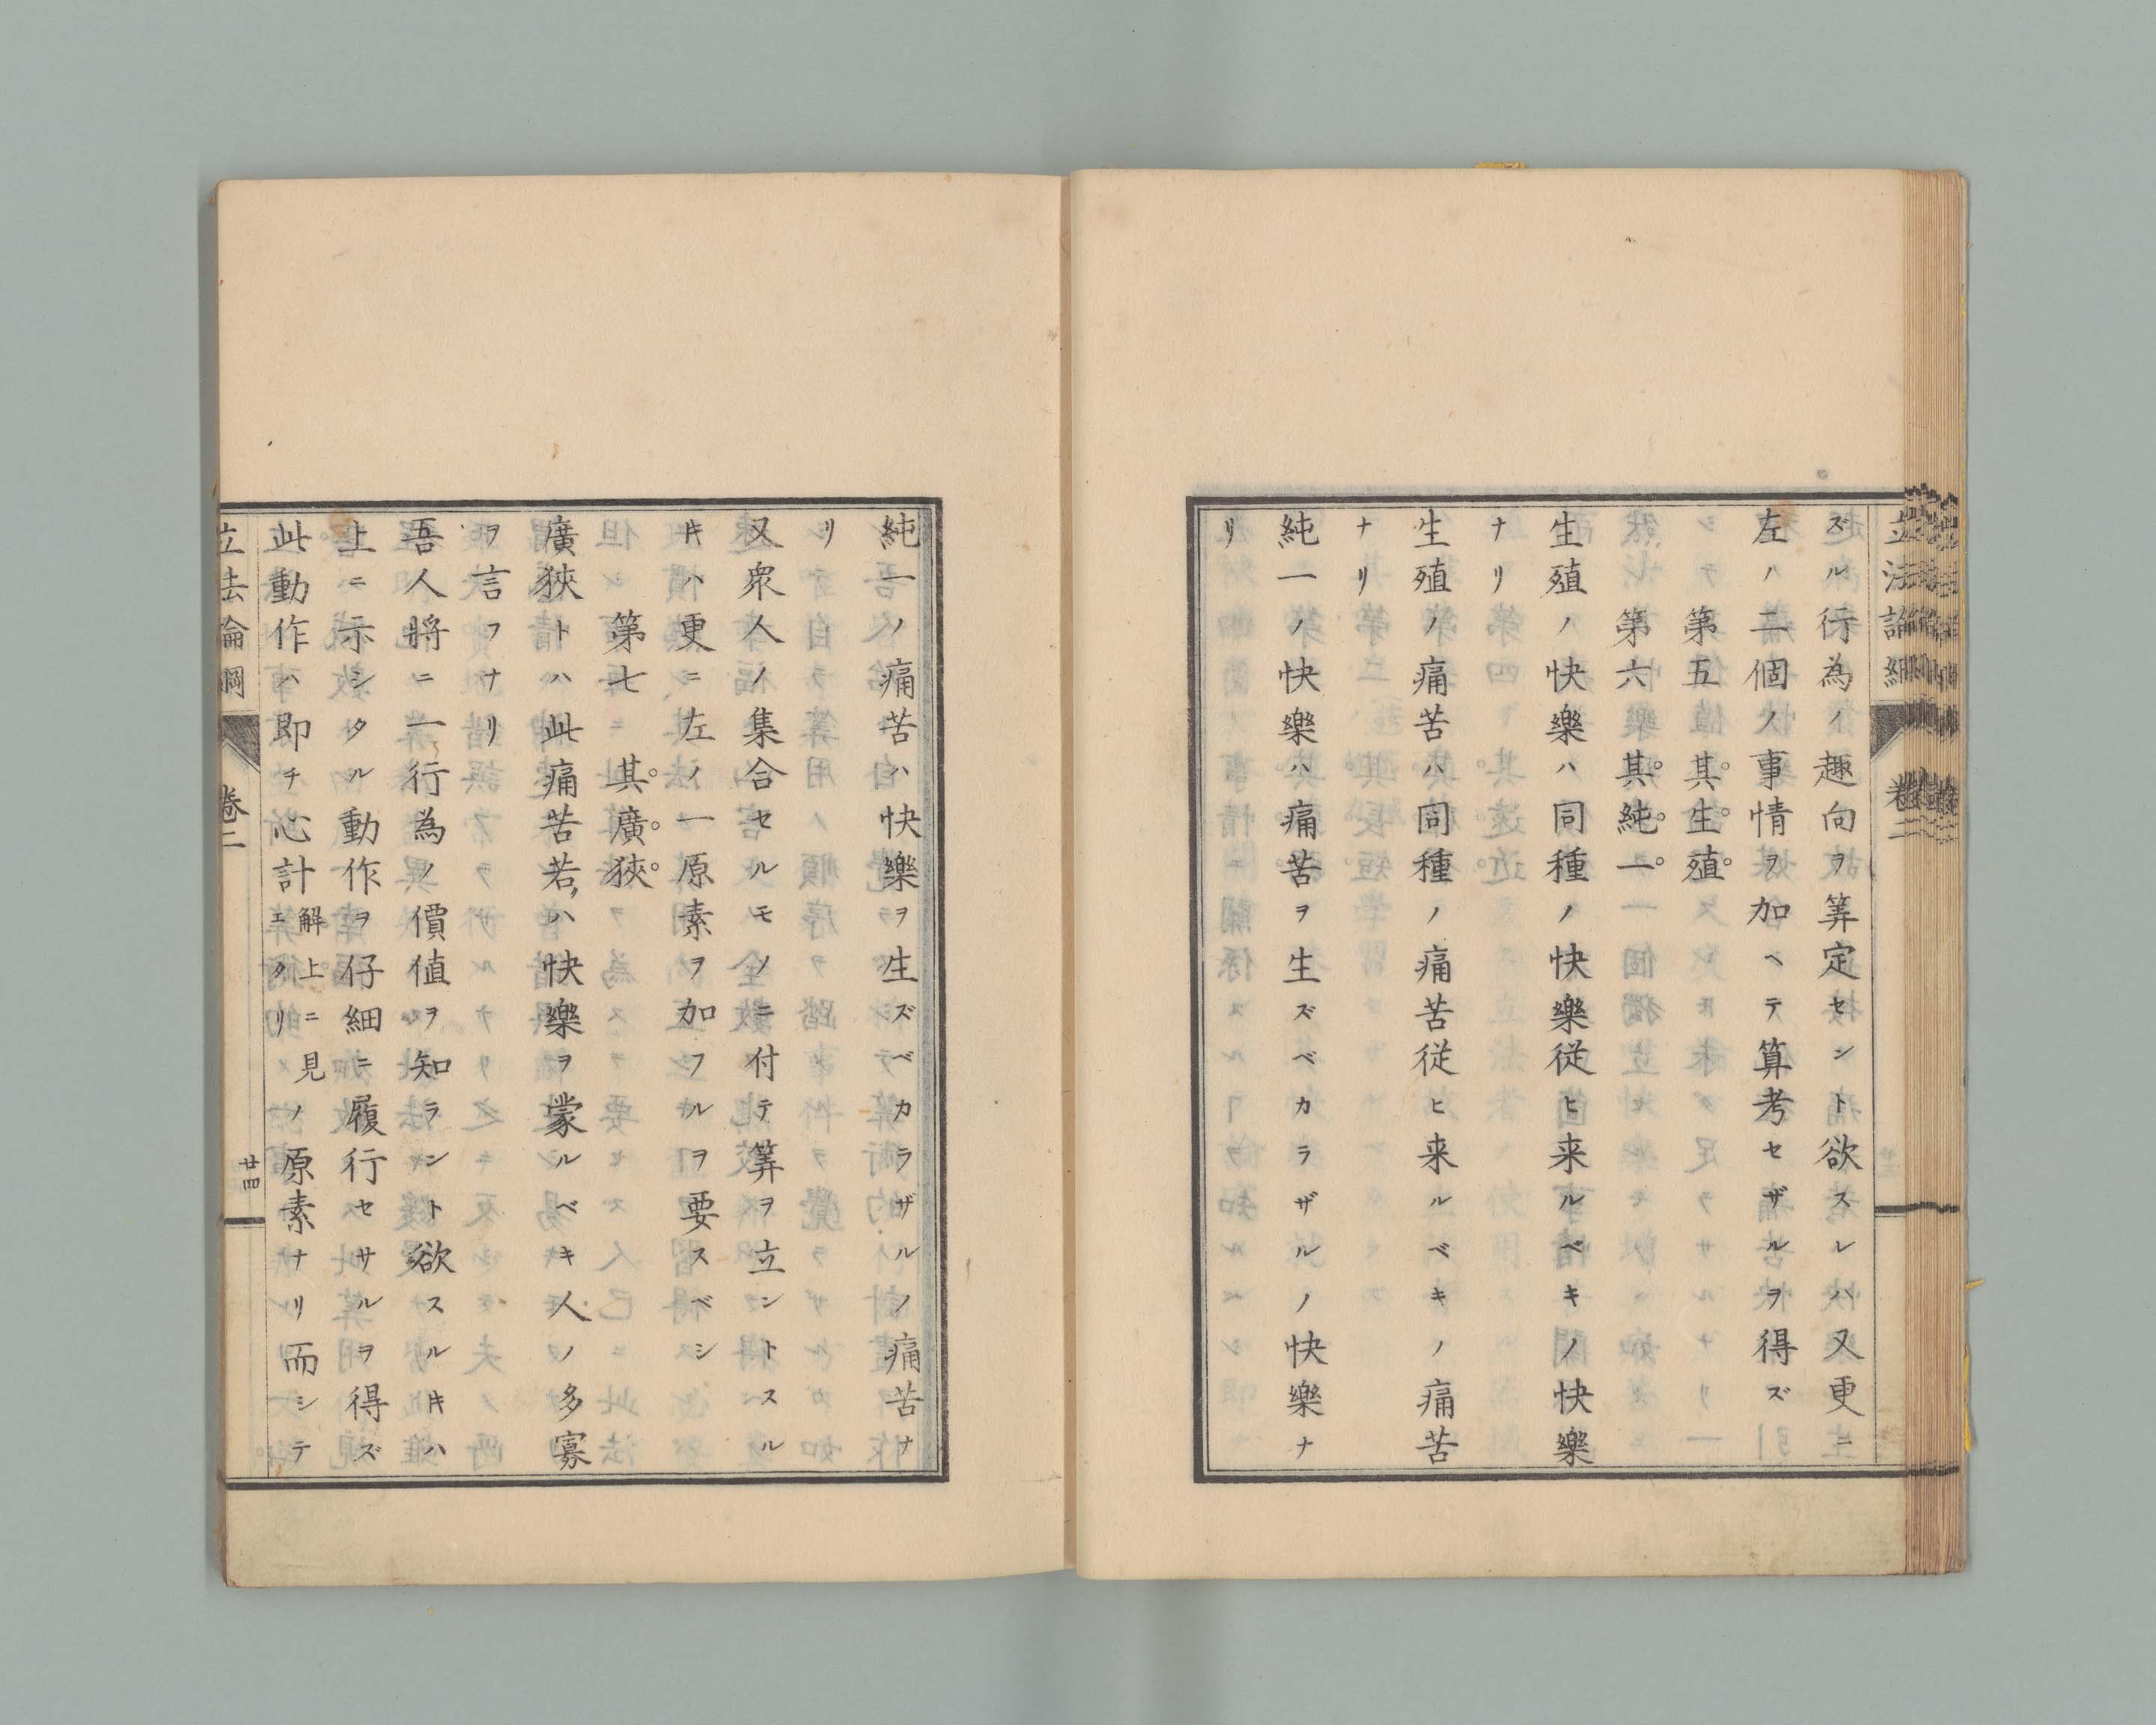 立法論綱 卷二
ズル行為ノ趣向ヲ筭定セント欲スレハ又更ニ
左ハ二個ノ事情ヲ加ヘテ算考セザルヲ得ズ
第五 其生殖
第六 其純一
生殖ノ快樂ハ同種ノ快樂従ヒ来ルベキノ快樂
ナリ
生殖ノ痛苦ハ同種ノ痛苦従ヒ来ルベキノ痛苦
ナリ
純一ノ快樂ハ痛苦ヲ生ズベカラザルノ快樂ナ
リ
純一ノ痛苦ハ快樂ヲ生ズベカラザルノ痛苦ナ
リ
又衆人ノ集合セルモノニ付テ筭ヲ立ントスル
𪜈ハ更ニ左ノ一原素ヲ加フルヲ要スベシ
第七 其廣狹
廣狹トハ此痛苦若クハ快樂ヲ蒙ルベキ人ノ多寡
ヲ言フナリ
吾人將ニ一行為ノ價値ヲ知ラント欲スルキハ
上ニ示シタル動作ヲ仔細ニ履行セサルヲ得ズ
此動作ハ即チ心計解上ニ見エタリノ原素ナリ而シテ
立法論綱 卷二 廿四